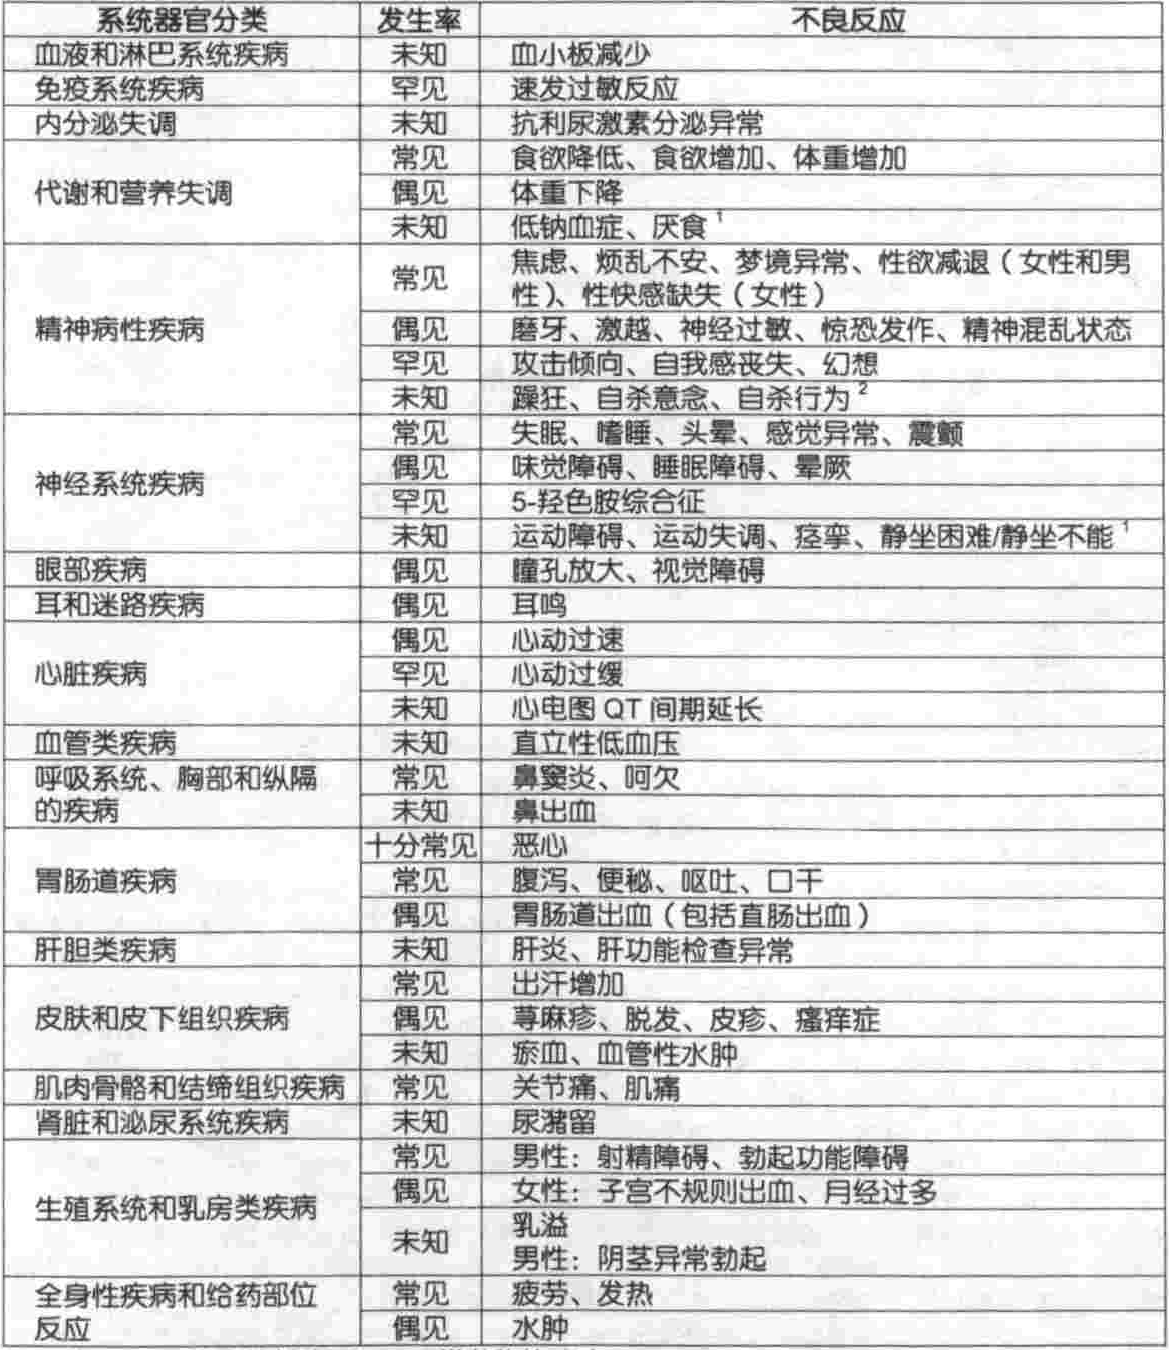 系统器官分类 发生率 不良反应
血液和淋巴系统疾病 未知 血小板减少
免疫系统疾病 罕见 速发过敏反应
内分泌失调 未知 抗利尿激素分泌异常
代谢和营养失调 常见 食欲降低、食欲增加、体重增加
偶见 体重下降
未知 低钠血症、厌食¹
精神病性疾病 常见 焦虑、烦乱不安、梦境异常、性欲减退（女性和男
性）、性快感缺失（女性）
偶见 磨牙、激越、神经过敏、惊恐发作、精神混乱状态
罕见 攻击倾向、自我感丧失、幻想
未知 躁狂、自杀意念、自杀行为²
神经系统疾病 常见 失眠、嗜睡、头晕、感觉异常、震颤
偶见 味觉障碍、睡眠障碍、晕厥
罕见 5-羟色胺综合征
未知 运动障碍、运动失调、痉挛、静坐困难/静坐不能¹
眼部疾病 偶见 瞳孔放大、视觉障碍
耳和迷路疾病 偶见 耳鸣
心脏疾病 偶见 心动过速
罕见 心动过缓
未知 心电图 QT 间期延长
血管类疾病 未知 直立性低血压
呼吸系统、胸部和纵隔 常见 鼻窦炎、呵欠
的疾病 未知 鼻出血
胃肠道疾病 十分常见 恶心
常见 腹泻、便秘、呕吐、口干
偶见 胃肠道出血（包括直肠出血）
肝胆类疾病 未知 肝炎、肝功能检查异常
皮肤和皮下组织疾病 常见 出汗增加
偶见 荨麻疹、脱发、皮疹、瘙痒症
未知 瘀血、血管性水肿
肌肉骨骼和结缔组织疾病 常见 关节痛、肌痛
肾脏和泌尿系统疾病 未知 尿潴留
生殖系统和乳房类疾病 常见 男性：射精障碍、勃起功能障碍
偶见 女性：子宫不规则出血、月经过多
未知 乳溢
男性：阴茎异常勃起
全身性疾病和给药部位 常见 疲劳、发热
反应 偶见 水肿